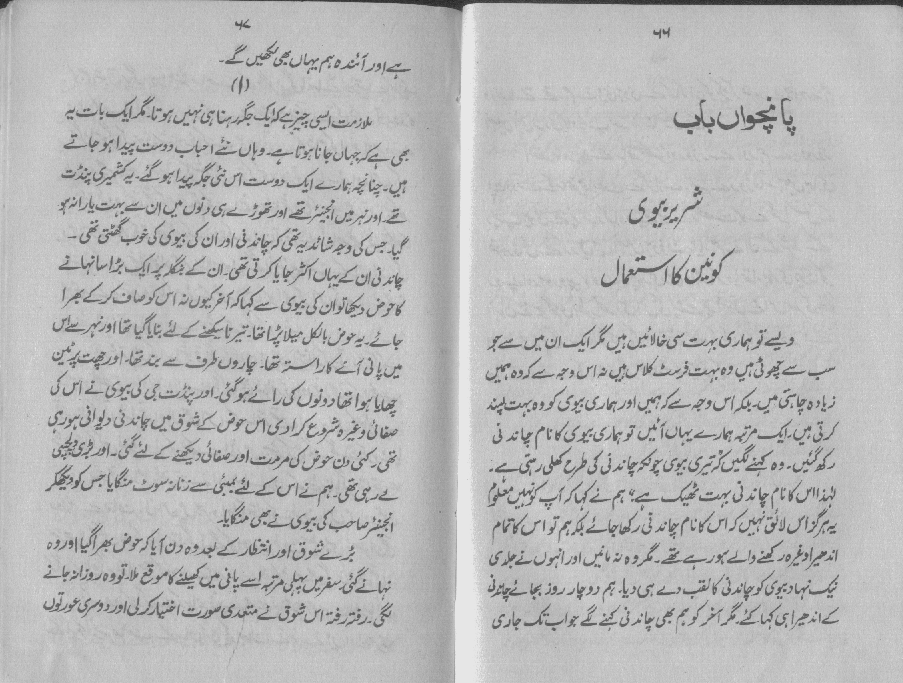 ۶۶
پانچواں باب
شریر بیوی
کونین کا استعمال
ویسے تو ہماری بہت سی خالائیں ہیں مگر ایک ان میں سے جو
سب سے چھوٹی ہیں وہ بہت فرسٹ کلاس ہیں نہ اس وجہ سے کہ وہ ہمیں
زیادہ چاہتی ہیں۔ بلکہ اس وجہ سے کہ ہمیں اور ہماری بیوی کو وہ بہت پسند
کرتی ہیں۔ ایک مرتبہ ہمارے یہاں آئیں تو ہماری بیوی کا نام چاندنی
رکھ گئیں۔ وہ کہنے لگیں کہ تیری بیوی چونکہ چاندنی کی طرح کھلی رہتی ہے۔
لہٰذا اس کا نام چاندنی بہت ٹھیک ہے؟ ہم نے کہا کہ آپ کو نہیں معلوم
یہ ہرگز اس لائق نہیں کہ اس کا نام چاندنی رکھا جائے بلکہ ہم تو اس کا تمام
اندھیرا وغیرہ رکھنے والے ہو رہے تھے۔ مگر وہ نہ مانیں اور انہوں نے جلدی
نیک نہاد بیوی کو چاندنی کا لقب دے ہی دیا۔ ہم دو چار روز بجائے چاندنی
کے اندھیرا ہی کہا کئے۔ مگر آخر کو ہم بھی چاندنی کہنے لگے جو اب تک جاری
۶۷
ہے اور آئندہ ہم یہاں بھی لکھیں گے۔
(۱)
ملازمت ایسی چیز ہے کہ ایک جگہ رہنا ہی نہیں ہوتا۔ مگر ایک بات یہ
بھی ہے کہ جہاں جانا ہوتا ہے۔ وہاں نئے احباب دوست پیدا ہو جاتے
ہیں۔ چنانچہ ہمارے ایک دوست اس نئی جگہ پیدا ہو گئے۔ یہ کشمیری پنڈت
تھے۔ اور نہر میں انجنئر تھے اور تھوڑے ہی دنوں میں ان سے بہت یارانہ ہو
گیا۔ جس کی وجہ شائد یہ تھی کہ چاندنی اور ان کی بیوی کی خوب گھٹتی تھی۔
چاندنی ان کے یہاں اکثر جایا کرتی تھی۔ ان کے بنگلہ پر ایک بڑا سا نہانے
کا حوض دیکھا تو ان کی بیوی سے کہا کہ آخر کیوں نہ اس کو صاف کر کے بھرا
جائے۔ یہ حوض بالکل میلا پڑا تھا۔ تیرنا سیکھنے کے لئے بنایا گیا تھا اور نہر سے اس
میں پانی آنے کا راستہ تھا۔ چاروں طرف سے بند تھا۔ اور چھت پر ٹین
چھایا ہوا تھا دونوں کی رائے ہو گئی۔ اور پنڈت جی کی بیوی نے اس کی
صفائی وغیرہ شروع کرا دی اس حوض کے شوق میں چاندنی دیوانی ہو رہی
تھی۔ کئی دن حوض کی مرمت اور صفائی دیکھنے کے لئے گئی۔ اور بڑی دلچسپی
لے رہی تھی۔ ہم نے اس کے لئے بمبئی سے زنانہ سوٹ منگایا جس کو دیکھ کر
انجنئر صاحب کی بیوی نے بھی منگایا۔
بڑے شوق اور انتظار کے بعد وہ دن آیا کہ حوض بھرا گیا اور وہ
نہانے گئی۔ سفر میں پہلی مرتبہ اسے پانی میں کھیلنے کا موقع ملا۔ تو وہ روزانہ جانے
لگی۔ رفتہ رفتہ اس شوق نے متعدی صورت اختیار کر لی اور دوسری عورتوں